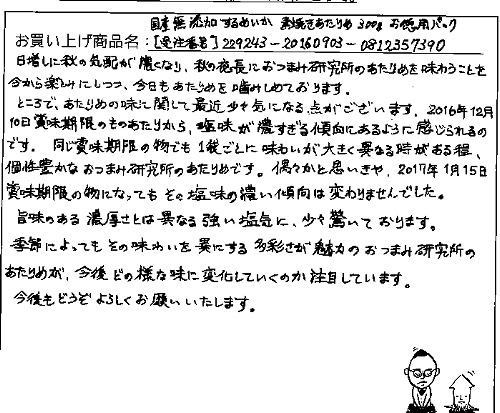 国産無添加するめいか 素焼きあたりめ 300g お徳用パック
お買い上げ商品名:[受注番号]229243-20160903-0812357390
日増しに秋の気配が濃くなり、秋の夜長におつまみ研究所のあたりめを味わうことを
今から楽しみにしつつ、今日もあたりめを噛みしめております。
ところで、あたりめの味に関して最近少々気になる点がございます。2016年12月
10日賞味期限のものあたりから、塩味が濃すぎる傾向にあるように感じられるの
です。同じ賞味期限の物でも1袋ごとに味わいが大きく異なる時がある程、
個性豊かなおつまみ研究所のあたりめです。偶々かと思いきや、2017年1月15日
賞味期限の物になってもその塩味の濃い傾向は変わりませんでした。
旨味のある濃厚さとは異なる強い塩気に、少々驚いております。
季節によってもその味わいを異にする多彩さが魅力のおつまみ研究所の
あたりめが、今後どの様な味に変化していくのか注目しています。
今後もどうぞよろしくお願いいたします。